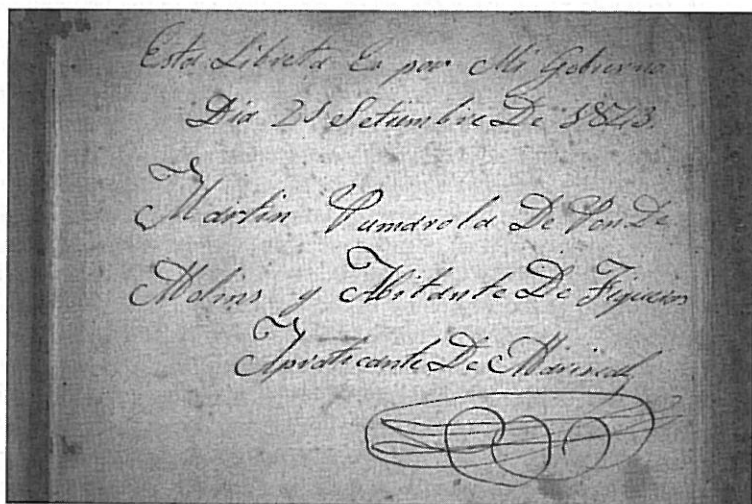 Esta Libreta Es por Mi Gobierno
Dia 21 Setiembre De 1843.
Martin Vumarola De Pon De
Molins y Abitante De Figueras
Ypraticante De